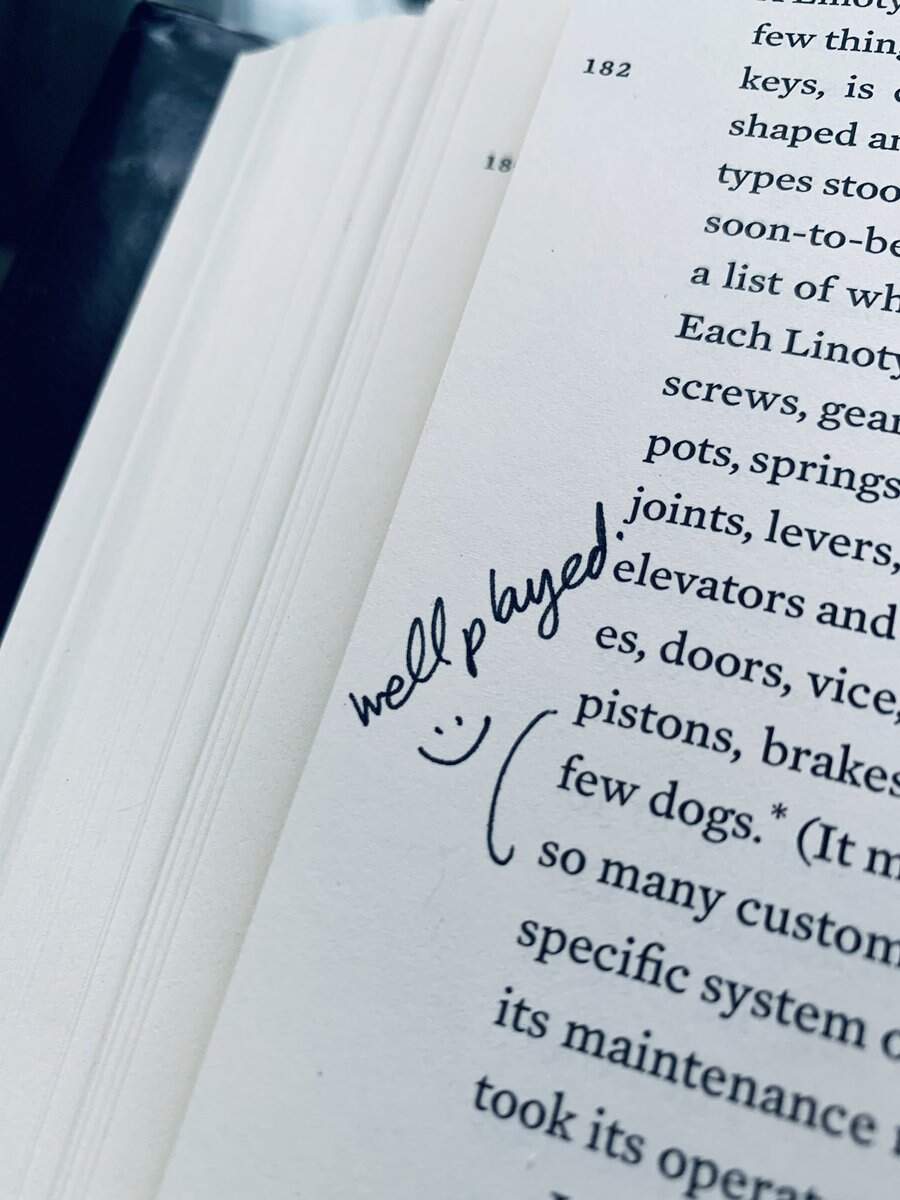 182
few
keys, is
shaped
types
soon-to-be
a list of
Each
screws,
pots, springs
joints, levers,
elevators and
es, doors, vice,
pistons, brakes
few dogs.* (It
so many custom
specific system
its maintenance
took its
well played.
:)